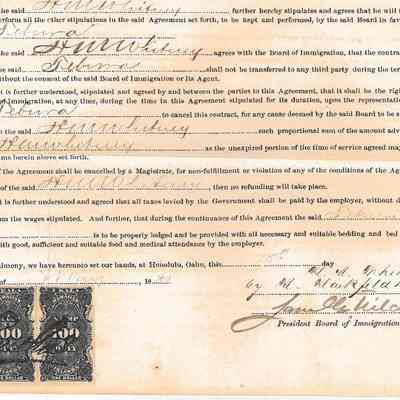 he said H M Whitney further hereby stipulates and agrees that he will t
erform all the other stipulations in the said Agreement set forth, to be kept and performed, by the said Board in favo
he said H M Whitney agrees with the Board of Immigration, that the contra
shall not be transferred to any third party during the ter
ithout the consent of the said Board of Immigration or its Agent.
t is further understood, stipulated and agreed by and between the parties to this Agreement, that it shall be the righ
f Immigration, at any time, during the time in this Agreement stipulated for its duration, upon the representation
to cancel this contract, for any cause deemed by the said Board to be su
n the said H M Whitney such proportional sum of the amount adva
H M Whitney as the unexpired portion of the time of service agreed may
ms herein above set forth.
f the Agreement shall be cancelled by a Magistrate, for non-fulfillment or violation of any of the conditions of the Ag
of the said H M Whitney, then no refunding will take place.
t is further understood and agreed that all taxes levied by the Government shall be paid by the employer, without d
om the wages stipulated. And further, that during the continuance of this Agreement the said
is to be properly lodged and be provided with all necessary and suitable bedding and bed
ith good, sufficient and suitable food and medical attendance by the employer.
timony, we have hereunto set our hands, at Honolulu, Oahu, this day
of 18
H. M. Whit
by
President Board of Immigration
100 100
ONE DOLLAR ONE DOLLAR